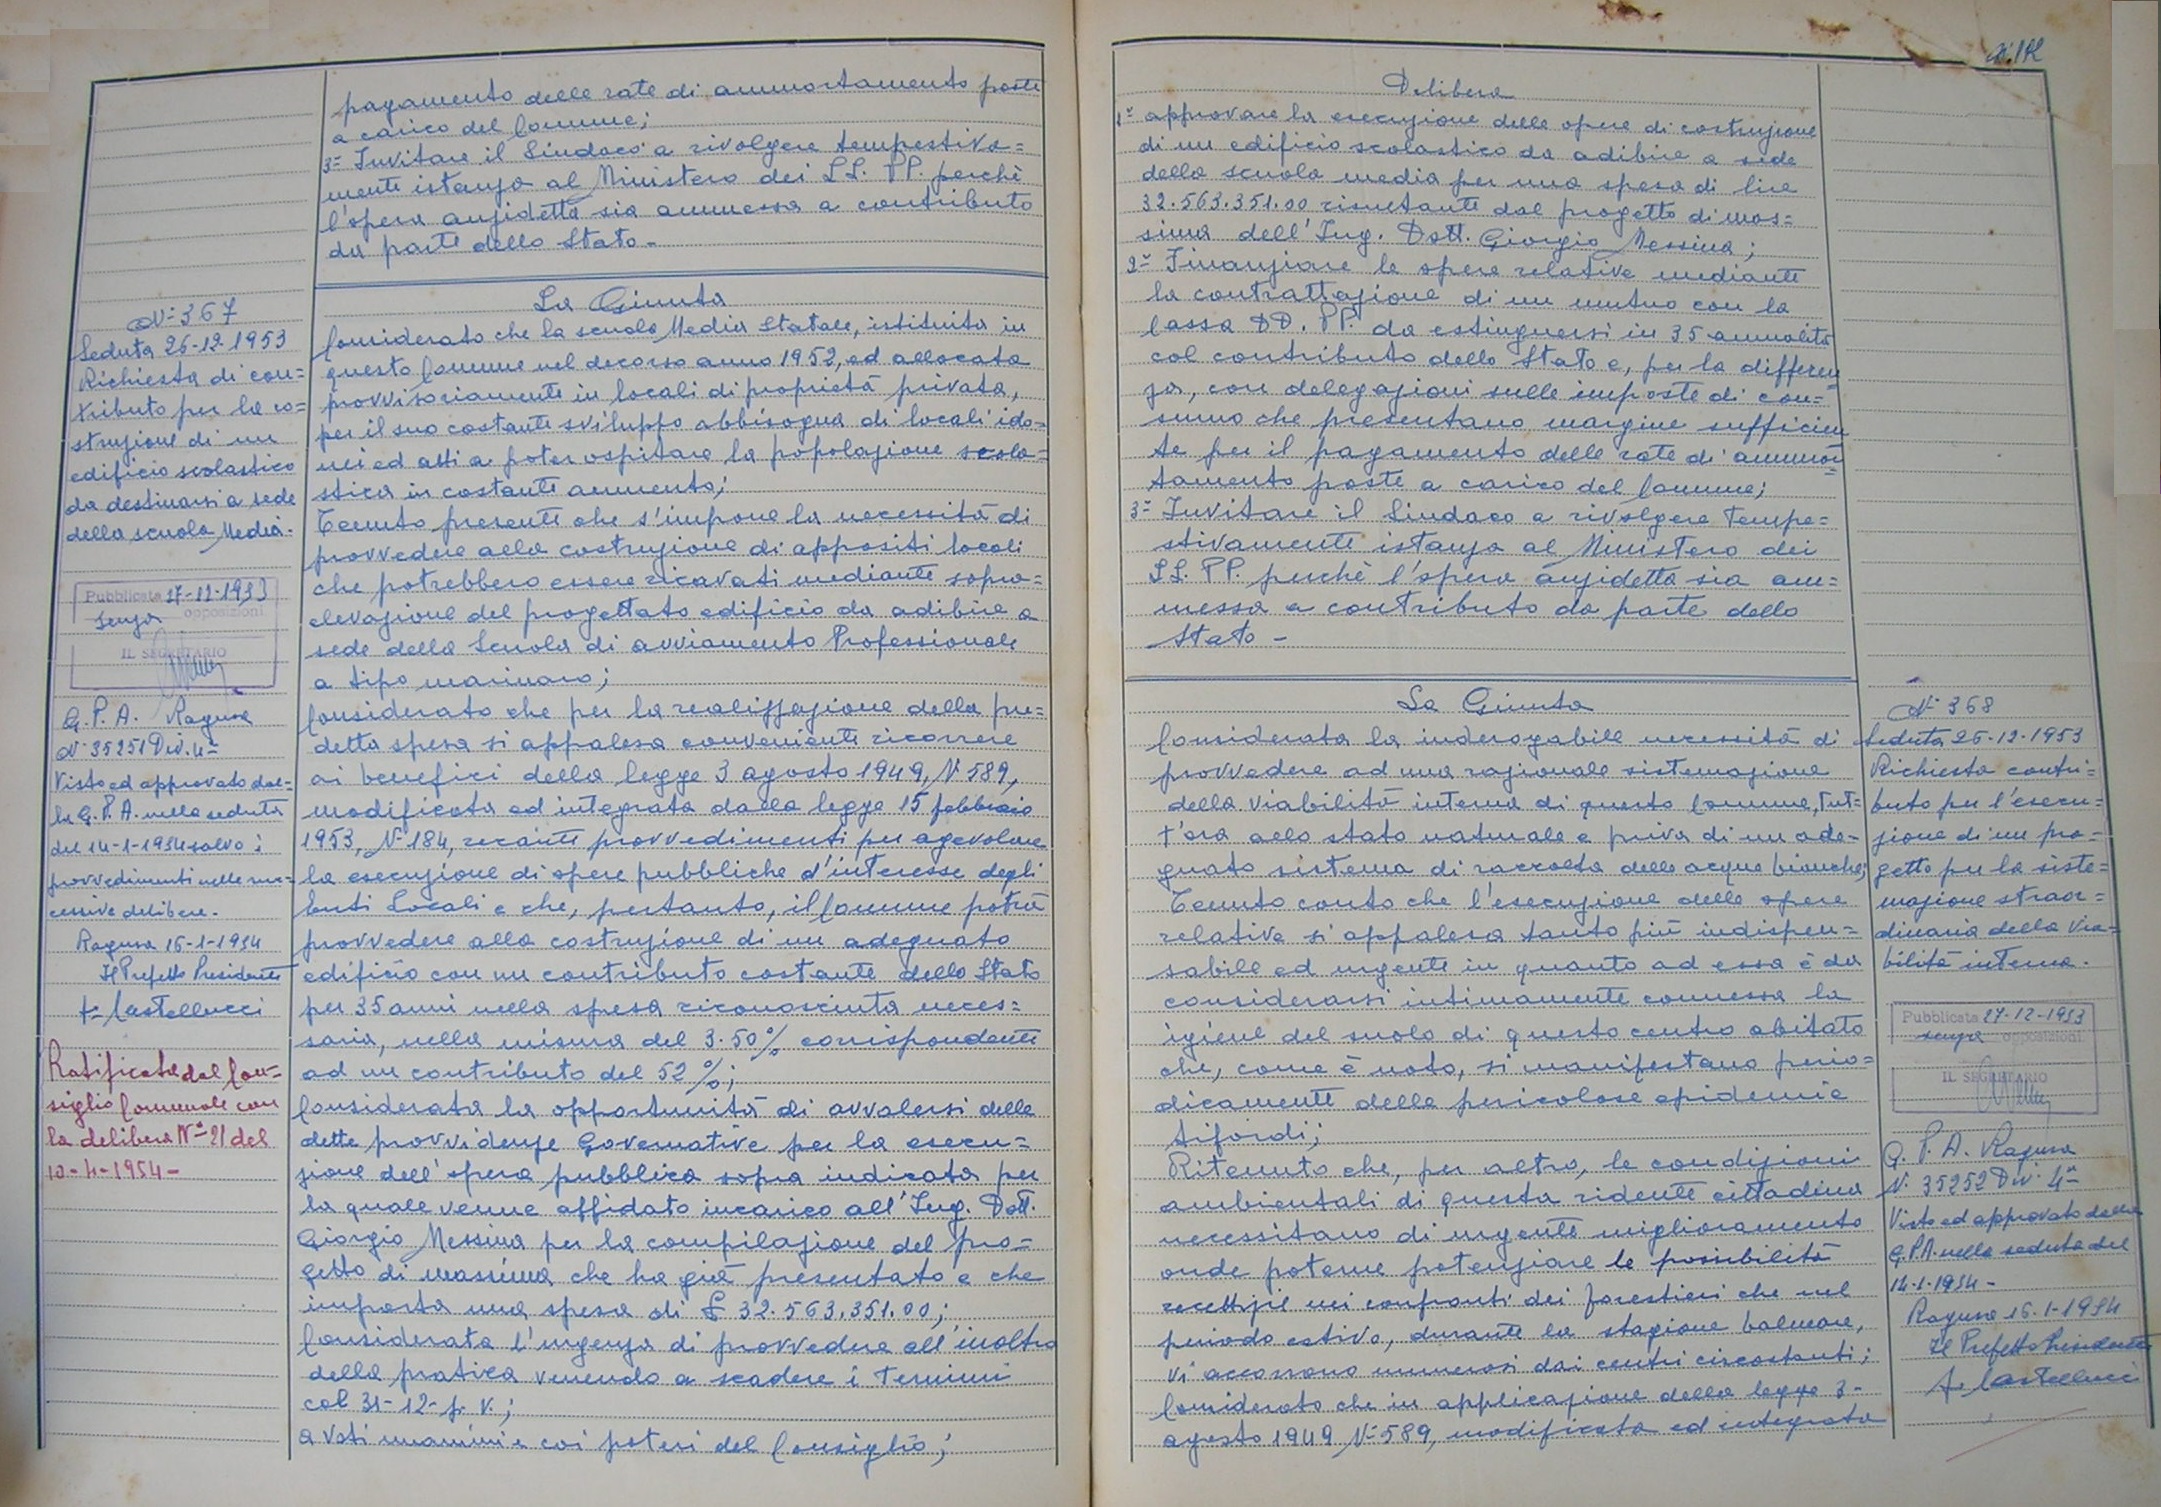 pagamento delle rate di ammortamento poste
a carico del Comune;
3= Invitare il Sindaco a rivolgere tempestiva=
mente istanza al Ministero dei LL. PP. perchè
l'opera anzidetta sia ammessa a contributo
da parte dello Stato-
N=367
Seduta 26-12-1953
Richiesta di con=
tributo per la co=
struzione di un
edificio scolastico
da destinarsi a sede
della scuola Media-
Pubblicata 27-12-1953
senza opposizioni
IL SEGRETARIO
G. P. A. Ragusa
N° 35251 Div. 4ª
Visto ed approvato dal=
la G. P. A. nella seduta
del 14-1-1954 salvo i
provvedimenti nelle suc=
cessive delibere.
Ragusa 16-1-1954
Il Prefetto Presidente
f= Castellucci
Ratificata dal Con=
siglio Comunale con
la delibera Nº 21 del
10-4-1954-
La Giunta
Considerato che la scuola Media Statale, istituita in
questo Comune nel decorso anno 1952, ed allocata
provvisoriamente in locali di proprietà privata,
per il suo costante sviluppo abbisogna di locali ido=
nei ed atti a poter ospitare la popolazione scola=
stica in costante aumento;
Tenuto presente che s'impone la necessità di
provvedere alla costruzione di appositi locali
che potrebbero essere ricavati mediante sopra=
elevazione del progettato edificio da adibire a
sede della Scuola di avviamento Professionale
a tipo marinaro;
Considerato che per la realizzazione della pre=
detta spesa si appalesa conveniente ricorrere
ai benefici della legge 3 agosto 1949, N° 589,
modificata ed integrata dalla legge 15 febbraio
1953, N° 184, recante provvedimenti per agevolare
la esecuzione di opere pubbliche d'interesse degli
Enti Locali e che, pertanto, il Comune potrà
provvedere alla costruzione di un adeguato
edificio con un contributo costante dello Stato
per 35 anni nella spesa riconosciuta neces=
saria, nella misura del 3.50% corrispondente
ad un contributo del 52%;
Considerata la opportunità di avvalersi delle
dette provvidenze Governative per la esecu=
zione dell'opera pubblica sopra indicata per
la quale venne affidato incarico all'Ing. Dott.
Giorgio Messina per la compilazione del pro=
getto di massima che ha già presentato e che
importa una spesa di £ 32.563.351.00;
Considerata l'urgenza di provvedere all'inoltro
della pratica venendo a scadere i termini
col 31-12-p.v.;
a voti unanimi e coi poteri del Consiglio;
Delibera
1= approvare la esecuzione delle opere di costruzione
di un edificio scolastico da adibire a sede
della scuola media per una spesa di lire
32.563.351.00 risultante dal progetto di mas=
sima dell'Ing. Dott. Giorgio Messina;
2= Finanziare le opere relative mediante
la contrattazione di un mutuo con la
Cassa DD. PP. da estinguersi in 35 annualità
col contributo dello Stato e, per la differen
za, con delegazioni sulle imposte di con=
sumo che presentano margine sufficien
te per il pagamento delle rate di ammor=
tamento poste a carico del Comune;
3= Invitare il Sindaco a rivolgere tempe=
stivamente istanza al Ministero dei
LL. PP. perchè l'opera anzidetta sia am=
messa a contributo da parte dello
Stato-
La Giunta
Considerata la inderogabile necessità di
provvedere ad una razionale sistemazione
della viabilità interna di questo Comune, tut=
t'ora allo stato naturale e priva di un ade=
guato sistema di raccolta delle acque bianche;
Tenuto conto che l'esecuzione delle opere
relative si appalesa tanto più indispen=
sabile ed urgente in quanto ad essa è da
considerarsi intimamente connessa la
igiene del suolo di questo centro abitato
che, come è noto, si manifestano perio=
dicamente delle pericolose epidemie
tifoidi;
Ritenuto che, per altro, le condizioni
ambientali di questa ridente cittadina
necessitano di urgente miglioramento
onde poterne potenziare le possibilità
recettizie nei confronti dei forestieri che nel
periodo estivo, durante la stagione balneare,
vi accorrono numerosi dai centri circostanti;
Considerato che in applicazione della legge 3-
agosto 1949 N° 589, modificata ed integrata
N° 368
Seduta 26-12-1953
Richiesta contri=
buto per l'esecu=
zione di un pro=
getto per la siste=
mazione straor=
dinaria della via=
bilità interna.
Pubblicata 27-12-1953
senza opposizioni
IL SEGRETARIO
G. P. A. Ragusa
N. 35252 Div. 4ª
Visto ed approvato dalla
G.P.A. nella seduta del
14-1-1954-
Ragusa 16-1-1954
Il Prefetto Presidente
f= Castellucci